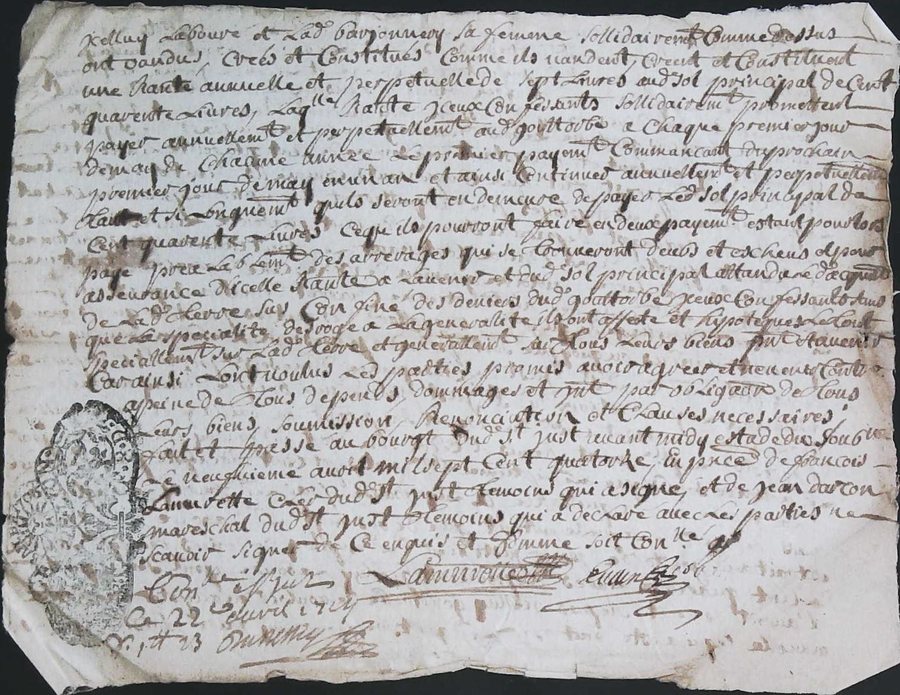 Lebouvé et Lad. barponnery sa femme sollidairemt Comme dessus
ont vandus, Creés et Constitués Comme ils vandent, Creent et Constituent
une Rante annuelle et perpetuelle de sept Livres aud. sol principal de Cent
quarente Livres, Laqlle Rante yceux Confessants sollidairemt promettent
payer annuellemt et perpetuellemt aud. gouttorbe a Chaque premier jour
de may de Chacune année Le premier payemt Commancant du prochain
premier jour de may en un an et ainsi Continuer annuellemt et perpetuellemt
tant et si Longuemt quils seront en demeure de payer Led. sol principal de
Cent quarente Livres Ce qu'ils pourront faire en deux payemts estant pour lors
payé prealablemt des arrerages qui se trouveront deubs et escheus et pour
asseurance dicelle Rante a Lavenir et dud. sol principal
de Lad. terre sus Confiné des deniers dud. gouttorbe yceux Confessants sans
que La specialité desroge a La generalité ils ont affecté et hypotequés Le tout
speciallemt sur Lad. terre et generallemt sur tous Leurs biens pnt et avenir
Car ainsi Lont voulus Les parties promis avoir agreer et ne venir Contre
a peine de tous depents, dommages et jnt par obligaon de tous
Leurs biens, soumission, Renonciation et Clauses necessaires,
fait et passé au bourgt dud. st just avant midy estude du soubne
Le neufvieme avril mil sept Cent quatorze, En pnce de francois
Laurirette dud. st just temoins qui a signé, et de jean darcon
mareschal dud. st just temoins qui a declaré avec Les parties ne
scavoir signer de Ce enquis et
Conlé
Ce 22e avril 1714